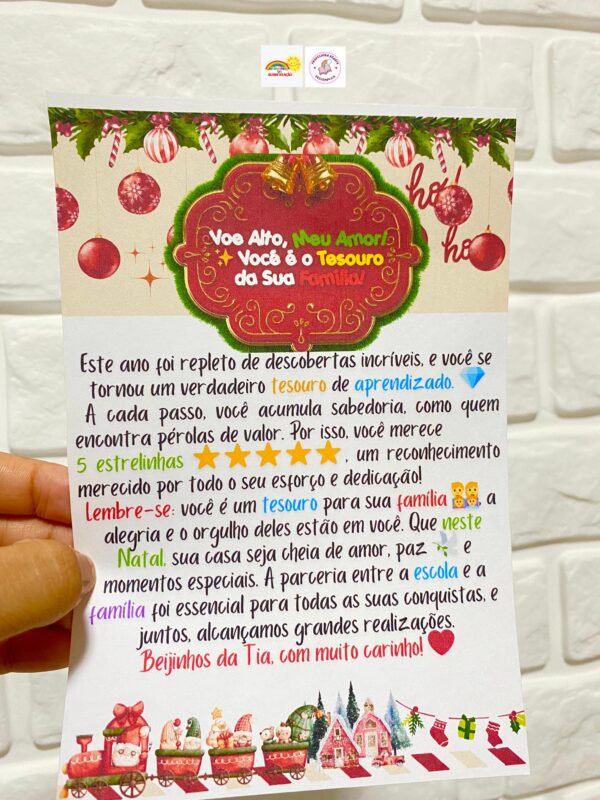 ho!
ho
Voe Alto, Meu Amor!
Você é o Tesouro
da Sua Família!
Este ano foi repleto de descobertas incríveis, e você se
tornou um verdadeiro tesouro de aprendizado.
A cada passo, você acumula sabedoria, como quem
encontra pérolas de valor. Por isso, você merece
5 estrelinhas ⭐⭐⭐⭐⭐, um reconhecimento
merecido por todo o seu esforço e dedicação!
Lembre-se: você é um tesouro para sua família, a
alegria e o orgulho deles estão em você. Que neste
Natal, sua casa seja cheia de amor, paz e
momentos especiais. A parceria entre a escola e a
família foi essencial para todas as suas conquistas, e
juntos, alcançamos grandes realizações.
Beijinhos da Tia, com muito carinho!